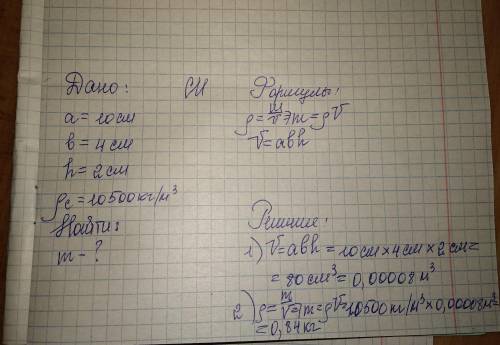 Дано:
a = 10 см
b = 4 см
h = 2 см
ρс = 10500 кг/м³
Найти:
m - ?
СИ
Формулы:
ρ = m/V => m = ρV
V = abh
Решение:
1) V = abh = 10 см × 4 см × 2 см =
= 80 см³ = 0,00008 м³
2) ρ = m/V => m = ρV = 10500 кг/м³ × 0,00008 м³ =
= 0,84 кг